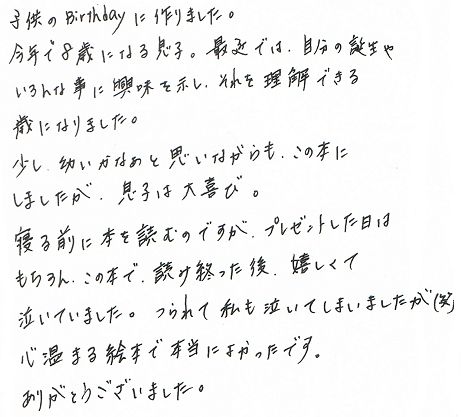 子供のBirthdayに作りました。
今年で8歳になる息子。最近では、自分の誕生や
いろんな事に興味を示し、それを理解できる
歳になりました。
少し、幼いかなぁと思いながらも、この本に
しましたが、息子は大喜び。
寝る前に本を読むのですが、プレゼントした日は
もちろん、この本で、読み終った後、嬉しくて
泣いていました。つられて私も泣いてしまいましたが(笑)
心温まる絵本で本当によかったです。
ありがとうございました。